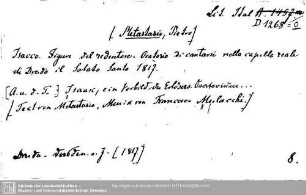 Lit. Ital. A 1457 m
D 1268 = 0
[Metastasio, Pietro]
Isacco. Figura del redentore. Oratorio di cantarsi nella capella reale
di Dresda il Sabato Santo 1817.
[A. u. d. T.:] Isaac, ein Vorbild des Erlösers. Oratorium...
[Text von Metastasio, Musik von Francesco Morlacchi.]
Dresda - Dresden o. J. [1817]
8.